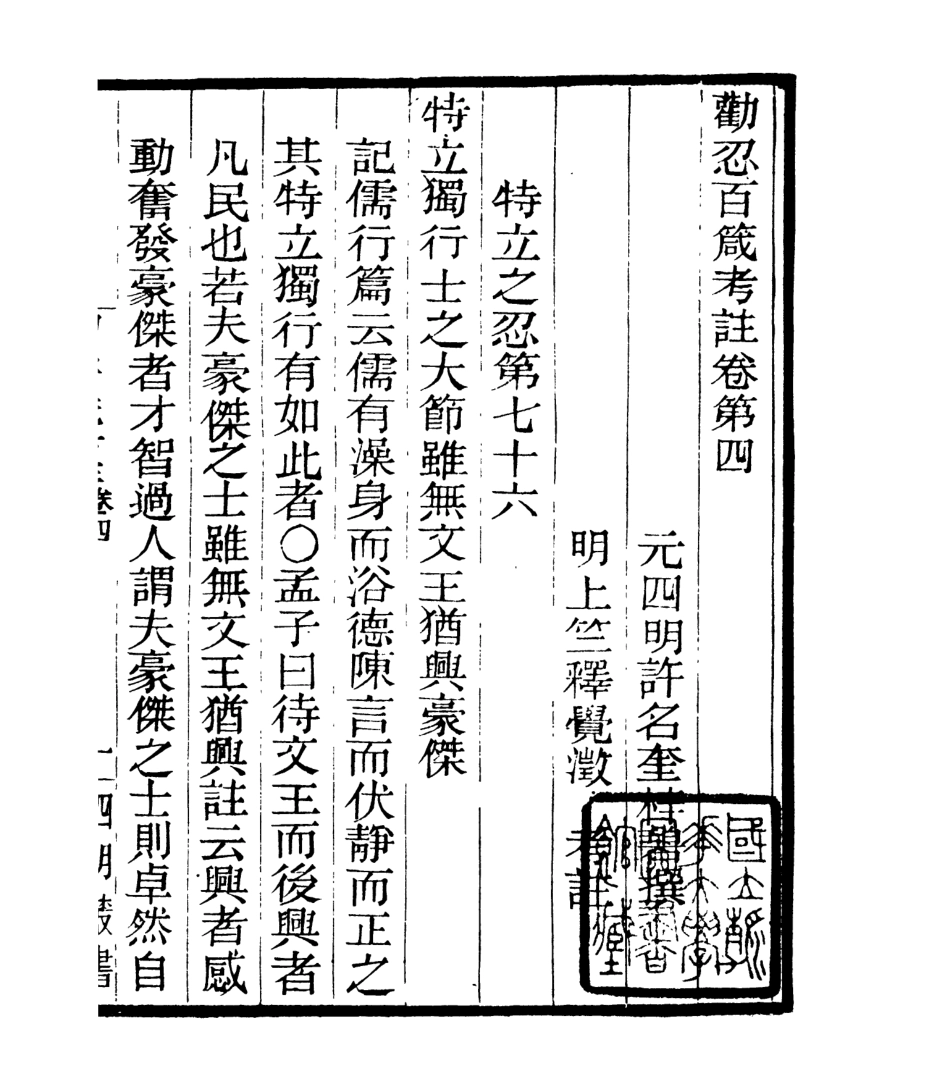 勸忍百箴考註卷第四
元四明許名奎梓撰
明上竺釋覺澂 考註
特立之忍第七十六
特立獨行士之大節雖無文王猶興豪傑
記儒行篇云儒有澡身而浴德陳言而伏靜而正之
其特立獨行有如此者〇孟子曰待文王而後興者
凡民也若夫豪傑之士雖無文王猶興註云興者感
動奮發豪傑者才智過人謂夫豪傑之士則卓然自
卷四
四明叢書
國立